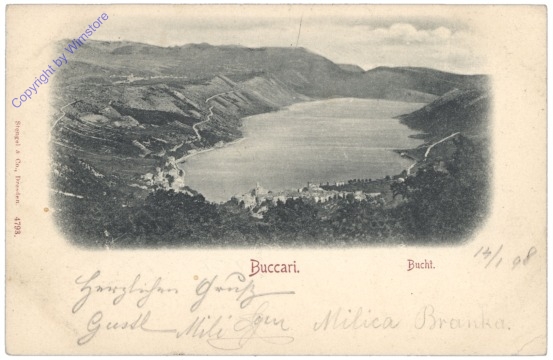 Copyright by Winstore
Stengel & Co., Dresden. 4793.
Buccari.
Bucht.
14/1 98
Herzlichen Gruß
Gustl Mili Milica Branka.